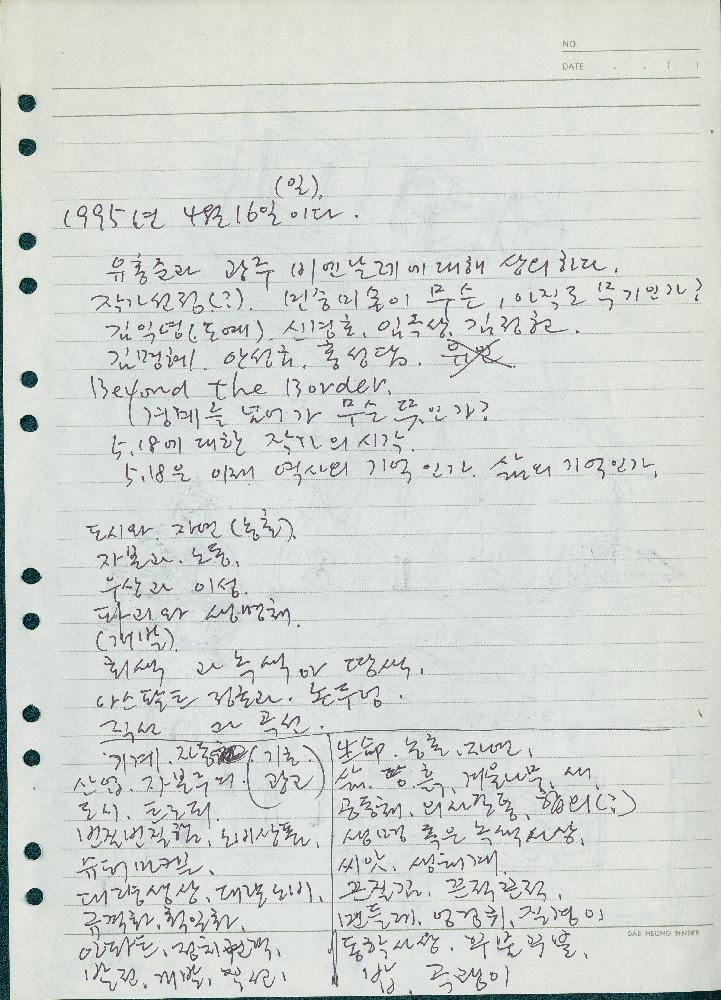 NO.
DATE . . ( )
(일)
1995년 4월 16일 이다.
유홍준과 광주 비엔날레에 대해 상의하다.
작가선정(?). 민중미술이 무슨, 아직도 무기인가?
김익영(도예). 신경호. 임옥상. 김정헌.
김명혜. 안성금. 홍성담.
Beyond the Border.
(경계를 넘어가 무슨 뜻인가?
5.18에 대한 작가의 시각.
5.18은 이제 역사의 기억인가. 삶의 기억인가.
도시와 자연(농촌).
자본과 노동.
우상과 이성.
파괴와 생명체.
(개발)
회색과 녹색 or 땅색.
아스팔트 정글과 논두렁.
직선과 곡선.
기계. 자동 (기술
산업. 자본주의 광고)
도시.
번질번질함. 소비상품.
슈퍼마켓.
대량생산. 대량소비.
규격화. 획일화.
아파트. 정치권력.
발전. 개발. 직선.
生命. 농촌. 자연.
삶. 땅 흙. 겨울나무. 새.
공동체. 의사소통. 합의(?)
생명 혹은 녹색사상.
씨앗. 생태계.
끈질김. 끈적끈적.
민들레. 엉겅퀴. 질경이
동학사상. 구불구불.
밥. 곡괭이
DAE HEUNG BINDER